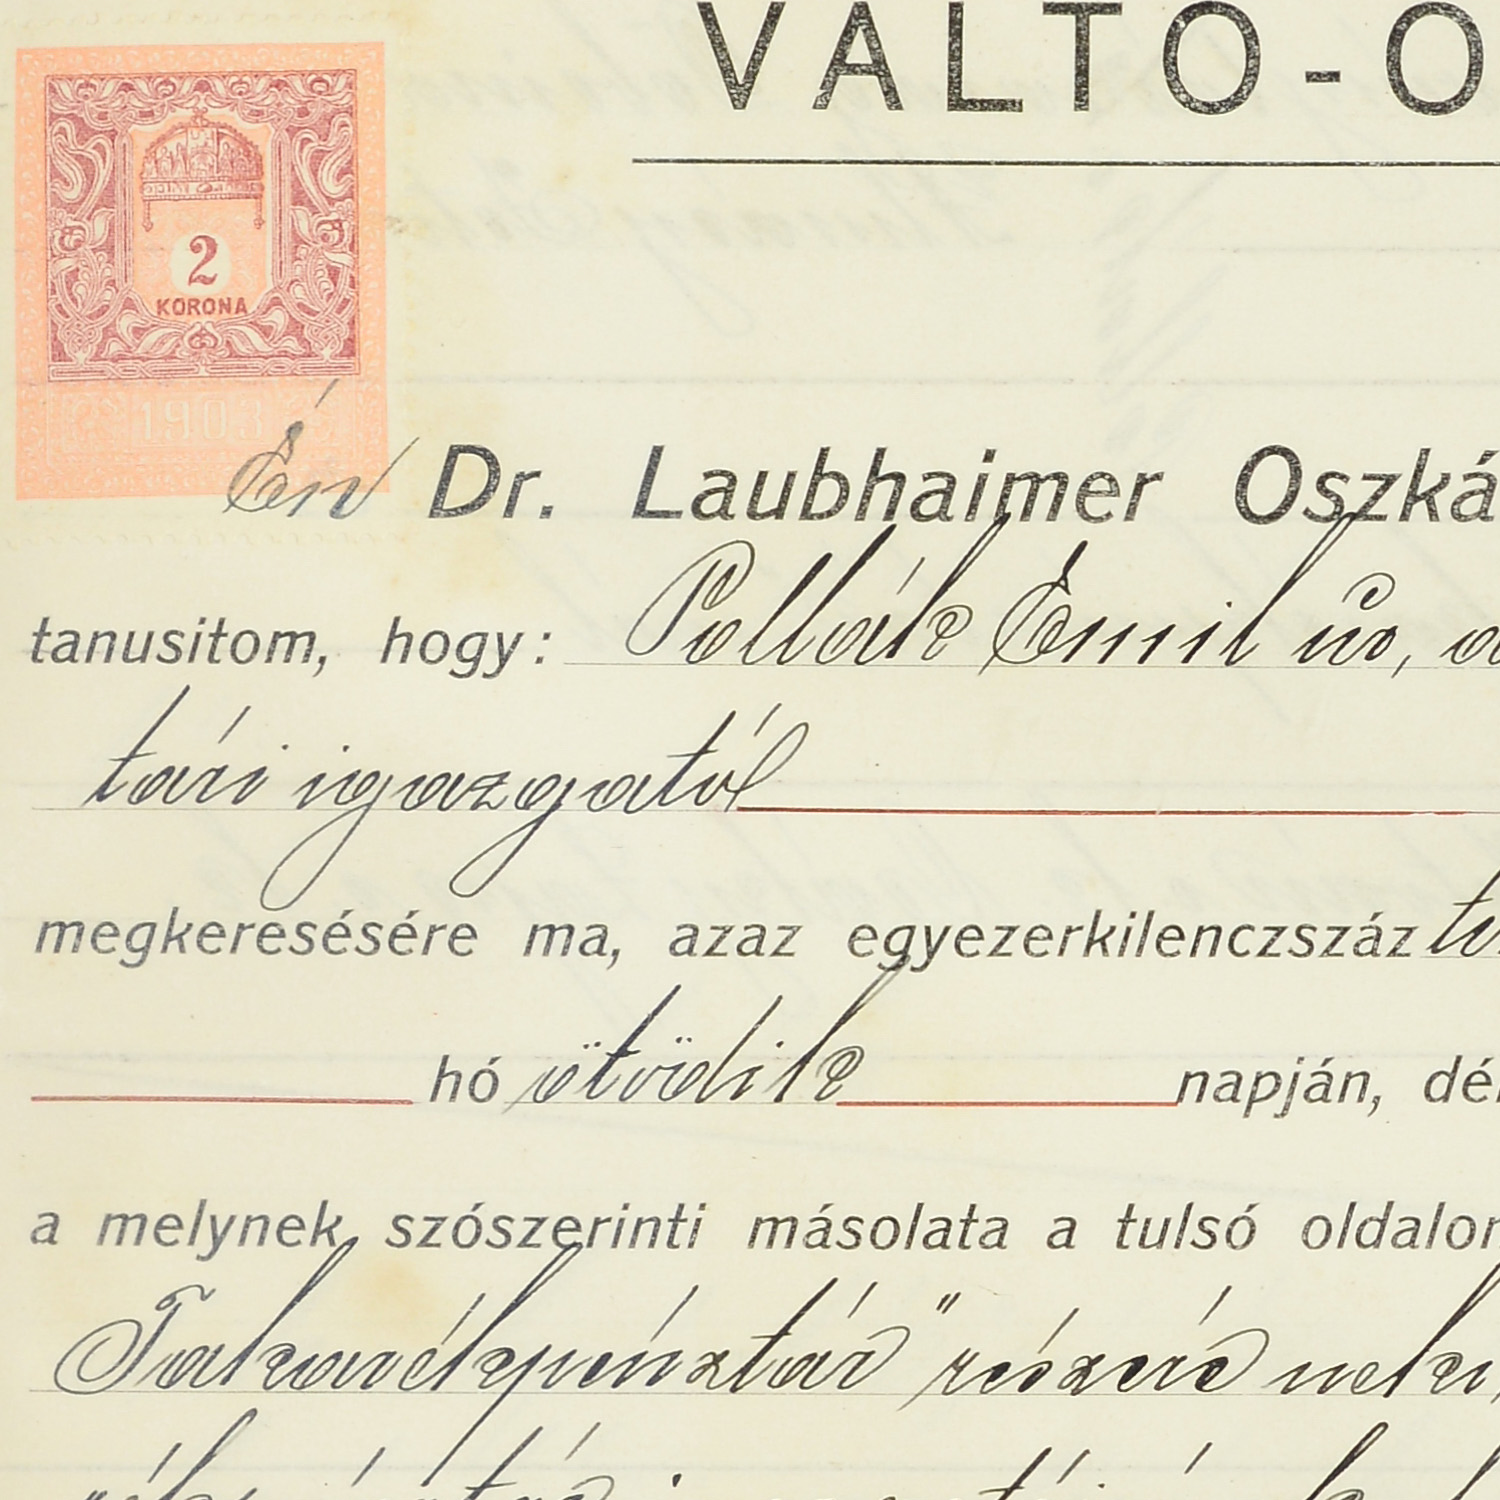 VALTO-O
2
KORONA
1903
Én Dr. Laubhaimer Oszká
tanusitom, hogy: Pollák Emil úr, a
tári igazgatól
megkeresésére ma, azaz egyezerkilenczszáz
hó ötödik napján, dél
a melynek szószerinti másolata a tulsó oldalon
Takarékpénztár" részére neki,